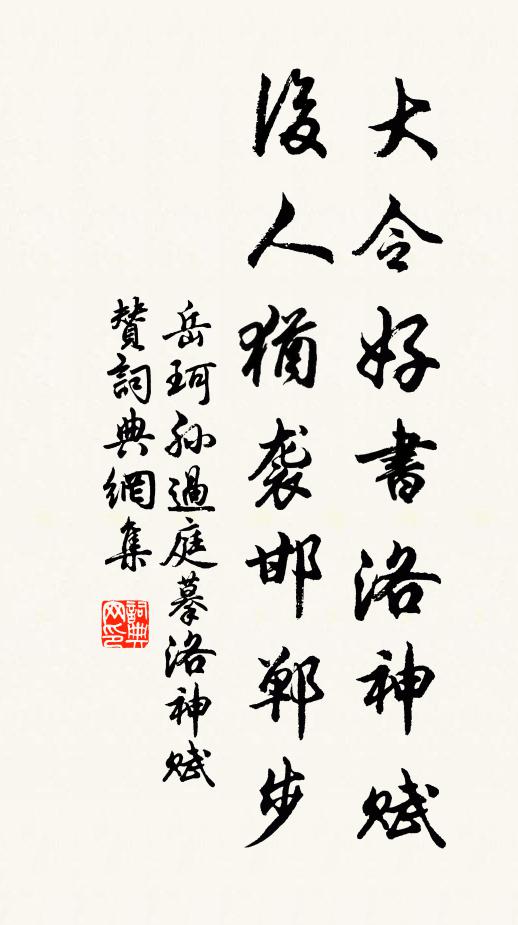 大令好書洛神賦
後人猶袭邯鄲步
岳珂孙過庭摹洛神赋
贊詞典網集
詞典网印